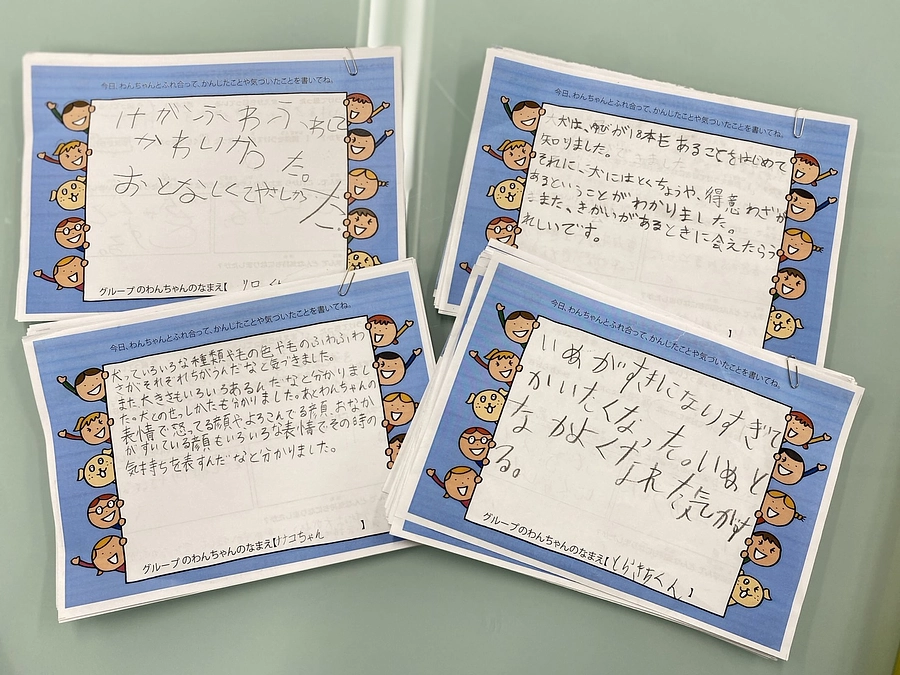 今日、わんちゃんとふれ合って、かんじたことや気づいたことを書いてね。
けがふわふわ
かわいかった。
おとなしくてやさしかった。
グループのわんちゃんのなまえ【
今日、わんちゃんとふれ合って、かんじたことや気づいたことを書いてね。
犬は、ゆびが18本もあることをはじめて
知りました。
それに、犬にはとくちょうや、得意わざが
あるということがわかりました。
また、きかいがあるときに会えたらう
れしいです。
】
今日、わんちゃんとふれ合って、かんじたことや気づいたことを書いてね。
犬っていろいろな種類やもの色やものふわふわ
さがそれぞれちがうんだなと気づきました。
また大きさもいろいろあるんだなと分かりまし
た。犬とのせっしかたも分かりました。あとわんちゃんの
表情で怒ってる顔やよろこんでる顔、おなか
がすいている顔もいろいろな表情でその時の
気持ちを表すんだなと分かりました。
グループのわんちゃんのなまえ【ナコちゃん 】
今日、わんちゃんとふれ合って、かんじたことや気づいたことを書いてね。
いぬがすきになりすぎて
かいたくなった。いぬと
なかよくなれた気がす
る。
グループのわんちゃんのなまえ【とらきちくん】